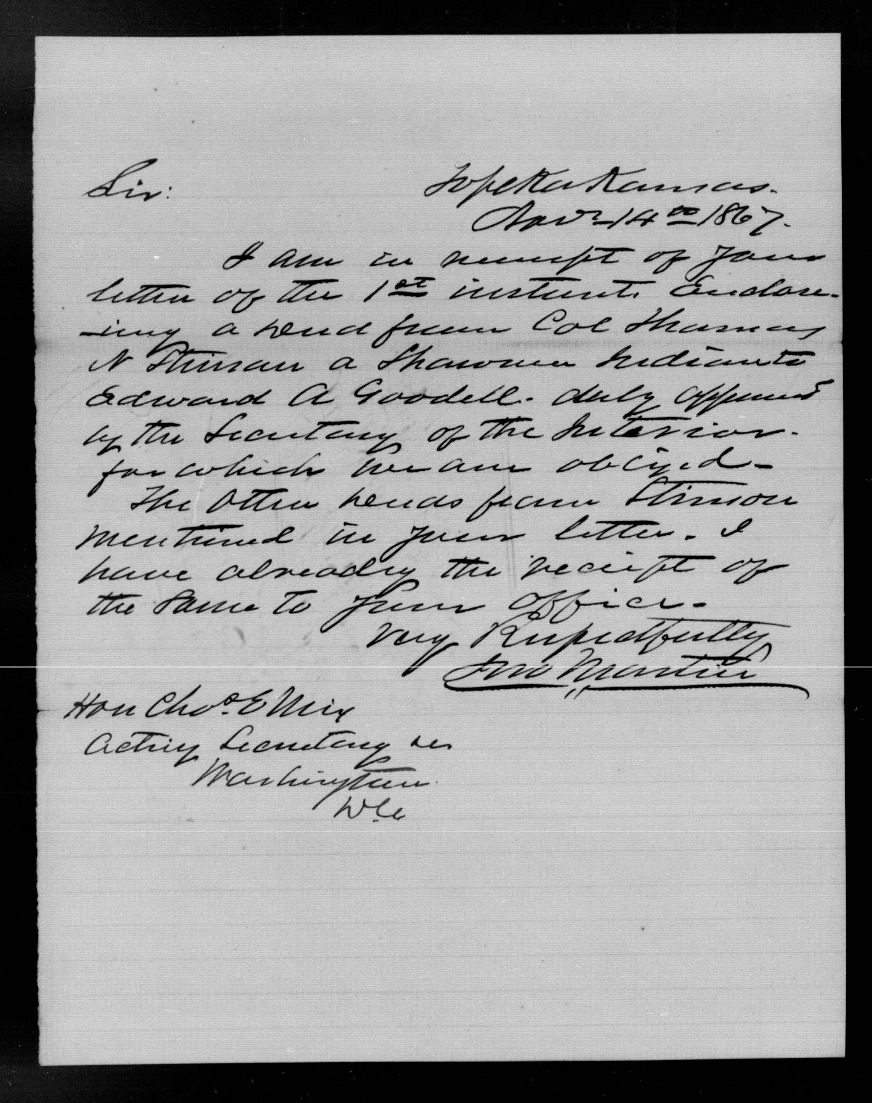 Sir:
Topeka Kansas.
Nov. 14th 1867.
I am in receipt of your
letter of the 1st instant. Enclos-
ing a deed from Col Thomas
N Stinson a Shawnee Indian to
Edward A Goodell. duly approved
by the Secretary of the Interior.
for which we are obliged -
The Other deeds from Stinson
mentioned in your letter. I
have already the receipt of
the same to your office.
Very Respectfully
Jno Martin
Hon Chas E Mix
Acting Secretary
Washington
D.C.